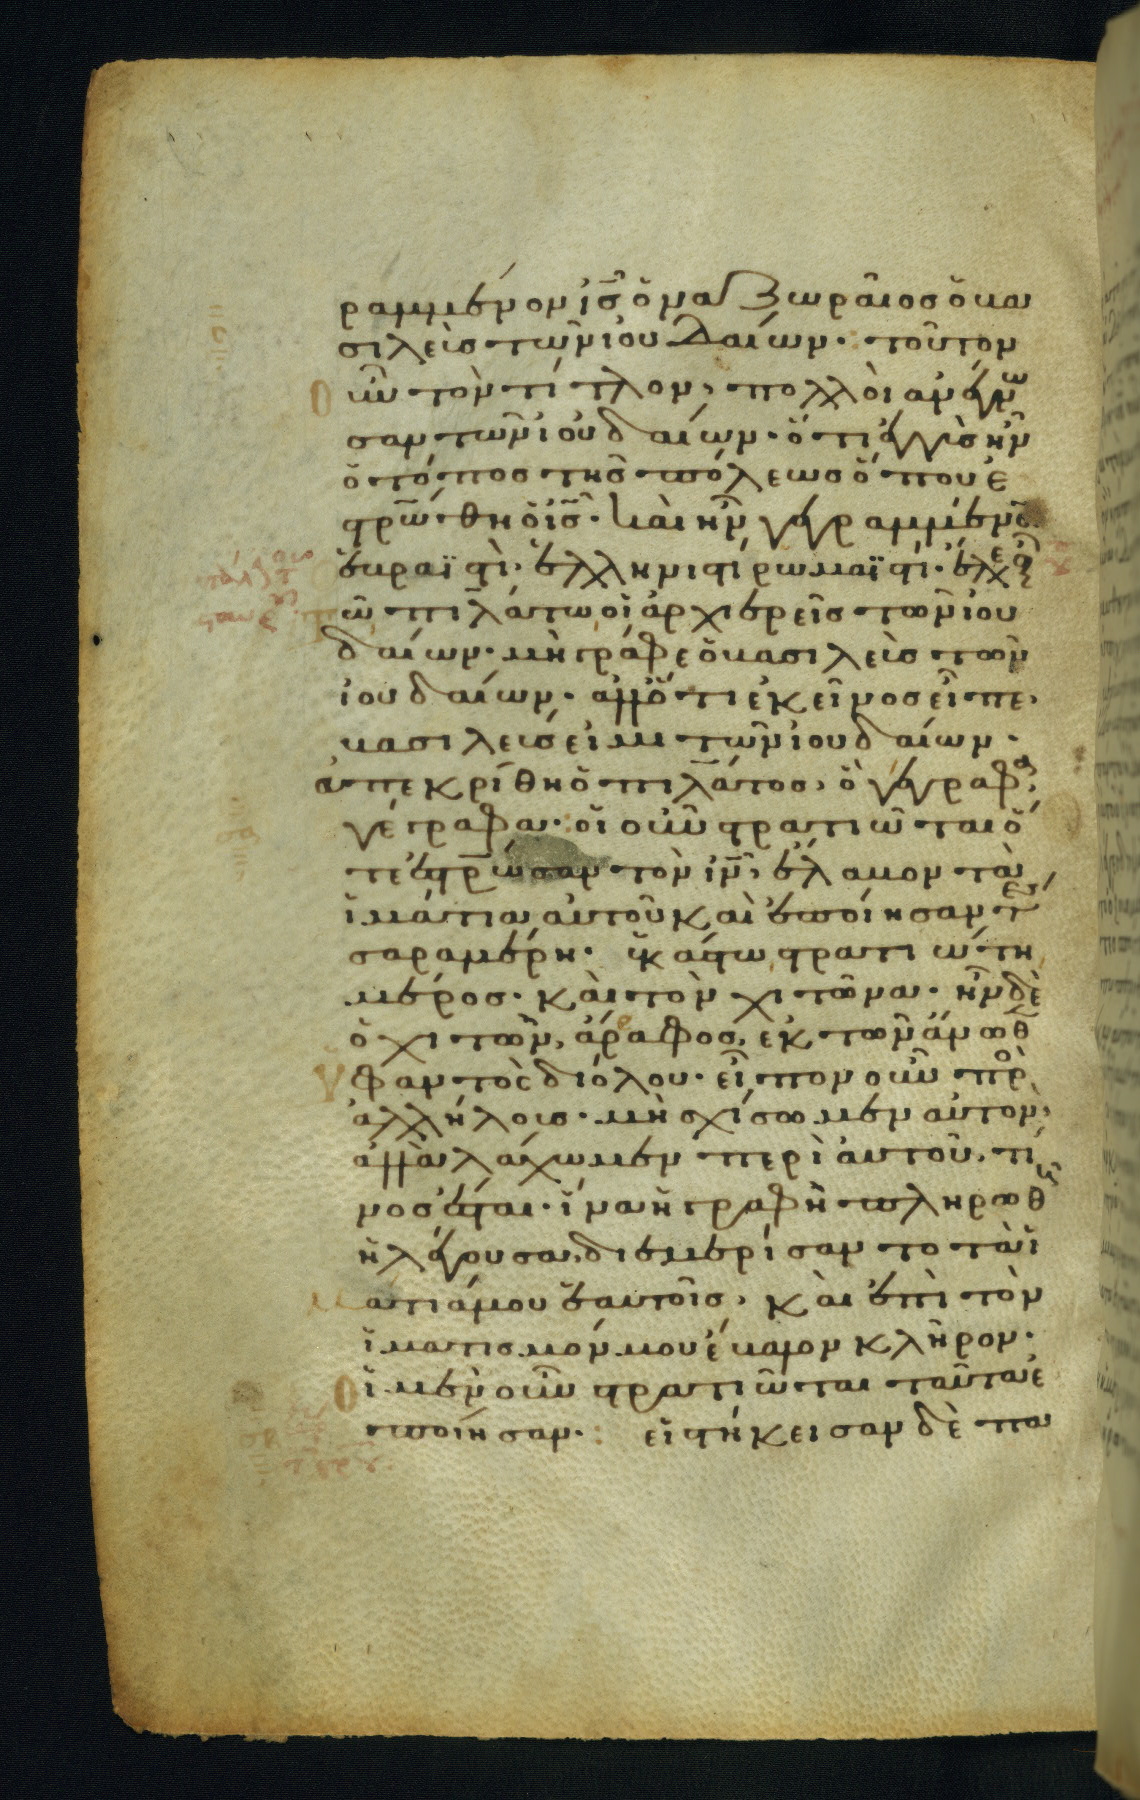 ραμμένον ἰς ὁ ναζωραῖος ὁ βα
σιλεὺς τῶν ἰουδαίων· τοῦτον
οὖν τὸν τίτλον, πολλοὶ ἀνέγνω
σαν τῶν ἰουδαίων· ὅτι ἐγγὺς ἦν
ὁ τόπος τῆς πόλεως ὅπου ἐ
στρώθη ὁ ἰς· καὶ ἦν γεγραμμένον
ἑβραϊστὶ· ἑλληνιστὶ ῥωμαϊστί· ἔλεγον
τῶ πιλάτω οἱ ἀρχιερεῖς τῶν ἰου
δαίων· μὴ γράφε ὁ βασιλεὺς τῶν
ἰουδαίων· ἀλλ' ὅτι ἐκεῖνος εἶπε,
βασιλεύς εἰμι τῶν ἰουδαίων·
ἀπεκρίθη ὁ πιλάτος, ὃ γέγραφα,
γέγραφα· οἱ οὖν στρατιῶται ὅ
τε ἐστρωσαν τὸν ἰν, ἔλαβον τὰ
ἱμάτια αὐτοῦ καὶ ἐποίησαν τέσ
σαρα μέρη· ἑκάστω στρατιώτη
μέρος· καὶ τὸν χιτῶνα· ἦν δὲ
ὁ χιτὼν, ἄραφος, ἐκ τῶν ἄνωθεν
ὑφαντὸς δι' ὅλου· εἶπον οὖν πρὸς
ἀλλήλους· μὴ σχίσωμεν αὐτὸν,
ἀλλὰ λάχωμεν περὶ αὐτοῦ, τί
νος ἔσται· ἵνα ἡ γραφὴ πληρωθῆ
ἡ λέγουσα, διεμερίσαντο τὰ ἱ
μάτιά μου ἑαυτοῖς, καὶ ἐπὶ τὸν
ἱματισμόν μου ἔβαλον κλῆρον·
Οἱ μὲν οὖν στρατιῶται ταῦτα ἐ
ποίησαν· εἱστήκεισαν δὲ πα